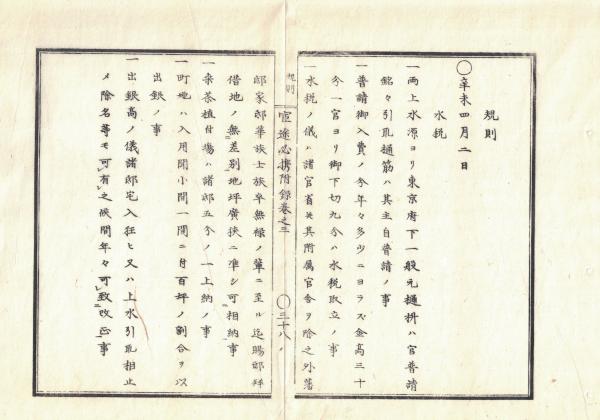 規則
〇辛未四月二日
水税
一両上水源ヨリ東京府下一般元樋枡ハ官普請
銘々引取樋筋ハ其主自普請ノ事
一普請御入費ノ今年々多少ニヨラズ金高三十
今一官ヨリ御下切九今ハ水税取立ノ事
一水税ノ儀ハ諸官省共其附属官舎ヲ除之外藩
規則
官途必携附録巻之三
〇三十八ノ
邸家邸華族士族卒無禄ノ輩ニ至ル迄賜邸拝
借地ノ無差別地坪廣狭ニ準シ可相納事
一桑茶植付場ハ諸邸五分ノ一上納ノ事
一町地ハ入用間小間一間ニ付百坪ノ割合ヲ以
出銀ノ事
一出銀高ノ儀諸邸宅入狂ヒ又ハ上水引取相止
メ除名等モ可有之候間年々可致改正事